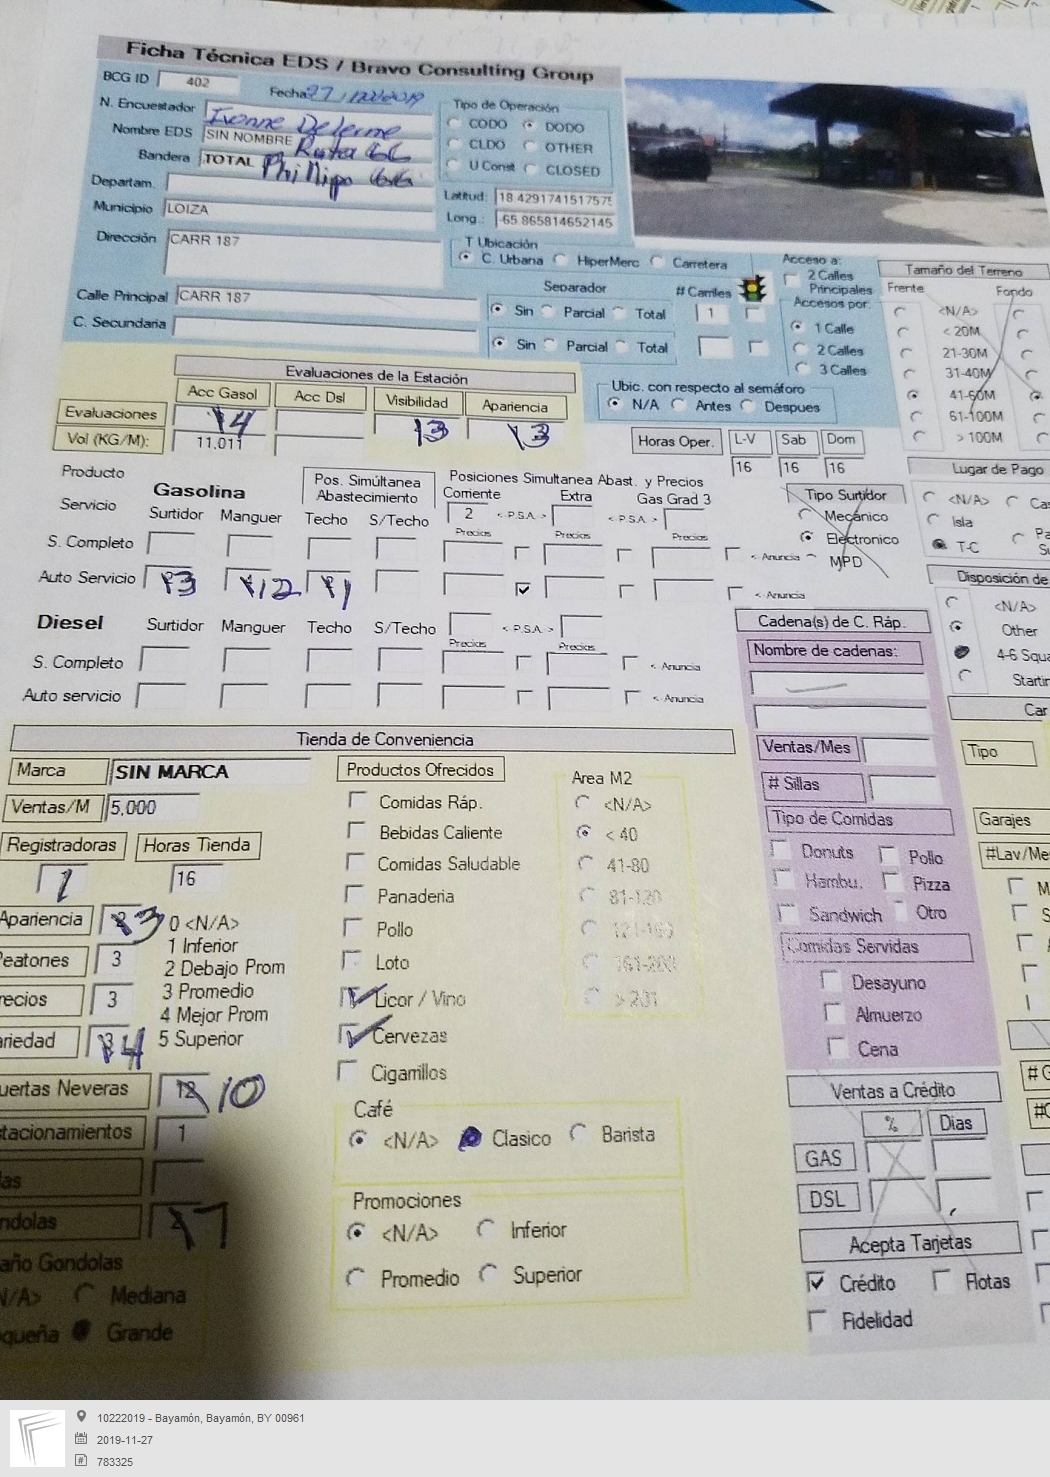 Ficha Técnica EDS / Bravo Consulting Group
BCG ID 402 Fecha 27/nov/2019
N. Encuestador Ivonne Delerme
Nombre EDS SIN NOMBRE Ruta 66
Bandera TOTAL Phillips 66
Departam.
Municipio LOIZA
Dirección CARR 187
Calle Principal CARR 187
C. Secundaria
Tipo de Operación
CODO DODO
CLDO OTHER
U Const CLOSED
Latitud: 18.4291741517575
Long.: -65.865814652145
T Ubicación
C. Urbana HiperMerc Carretera
Separador # Carriles
Sin Parcial Total 1
Sin Parcial Total
Acceso a:
2 Calles
Principales
Accesos por:
1 Calle
2 Calles
3 Calles
Ubic. con respecto al semáforo
N/A Antes Despues
Tamaño del Terreno
Frente Fondo
<N/A>
< 20M
21-30M
31-40M
41-60M
61-100M
> 100M
Evaluaciones de la Estación
Acc Gasol Acc Dsl Visibilidad Apariencia
Evaluaciones 4 3 3
Vol (KG/M): 11,011
Horas Oper. L-V Sab Dom
16 16 16
Producto
Servicio
Gasolina
Pos. Simúltanea
Abastecimiento
Posiciones Simultanea Abast. y Precios
Corriente Extra Gas Grad 3
2 <-P.S.A.-> <-P.S.A.->
Surtidor Manguer Techo S/Techo Precios Precios Precios
S. Completo <- Anuncia
Auto Servicio 3 12 1 <- Anuncia
Tipo Surtidor
Mecánico
Electronico
MPD
Lugar de Pago
<N/A>
Isla
T-C
Disposición de
<N/A>
Other
4-6 Squa
Startin
Diesel Surtidor Manguer Techo S/Techo <-P.S.A.->
Precios Precios
S. Completo <- Anuncia
Auto servicio <- Anuncia
Tienda de Conveniencia
Marca SIN MARCA
Ventas/M 5,000
Registradoras Horas Tienda
1 16
Apariencia 3
eatones 3
recios 3
ariedad 4
0 <N/A>
1 Inferior
2 Debajo Prom
3 Promedio
4 Mejor Prom
5 Superior
uertas Neveras 12 10
stacionamientos 1
las
ndolas 7
año Gondolas
N/A> Mediana
queña Grande
Productos Ofrecidos
Comidas Ráp.
Bebidas Caliente
Comidas Saludable
Panaderia
Pollo
Loto
Licor / Vino
Cervezas
Cigarrillos
Area M2
<N/A>
< 40
41-80
81-120
> 201
Café
<N/A> Clasico Barista
Promociones
<N/A> Inferior
Promedio Superior
Cadena(s) de C. Ráp.
Nombre de cadenas:
Ventas/Mes
# Sillas
Tipo de Comidas
Donuts Pollo
Hambu. Pizza
Sandwich Otro
Comidas Servidas
Desayuno
Almuerzo
Cena
Ventas a Crédito
% Dias
GAS
DSL
Acepta Tarjetas
Crédito Flotas
Fidelidad
Car
Tipo
Garajes
#Lav/Me
10222019 - Bayamón, Bayamón, BY 00961
2019-11-27
783325